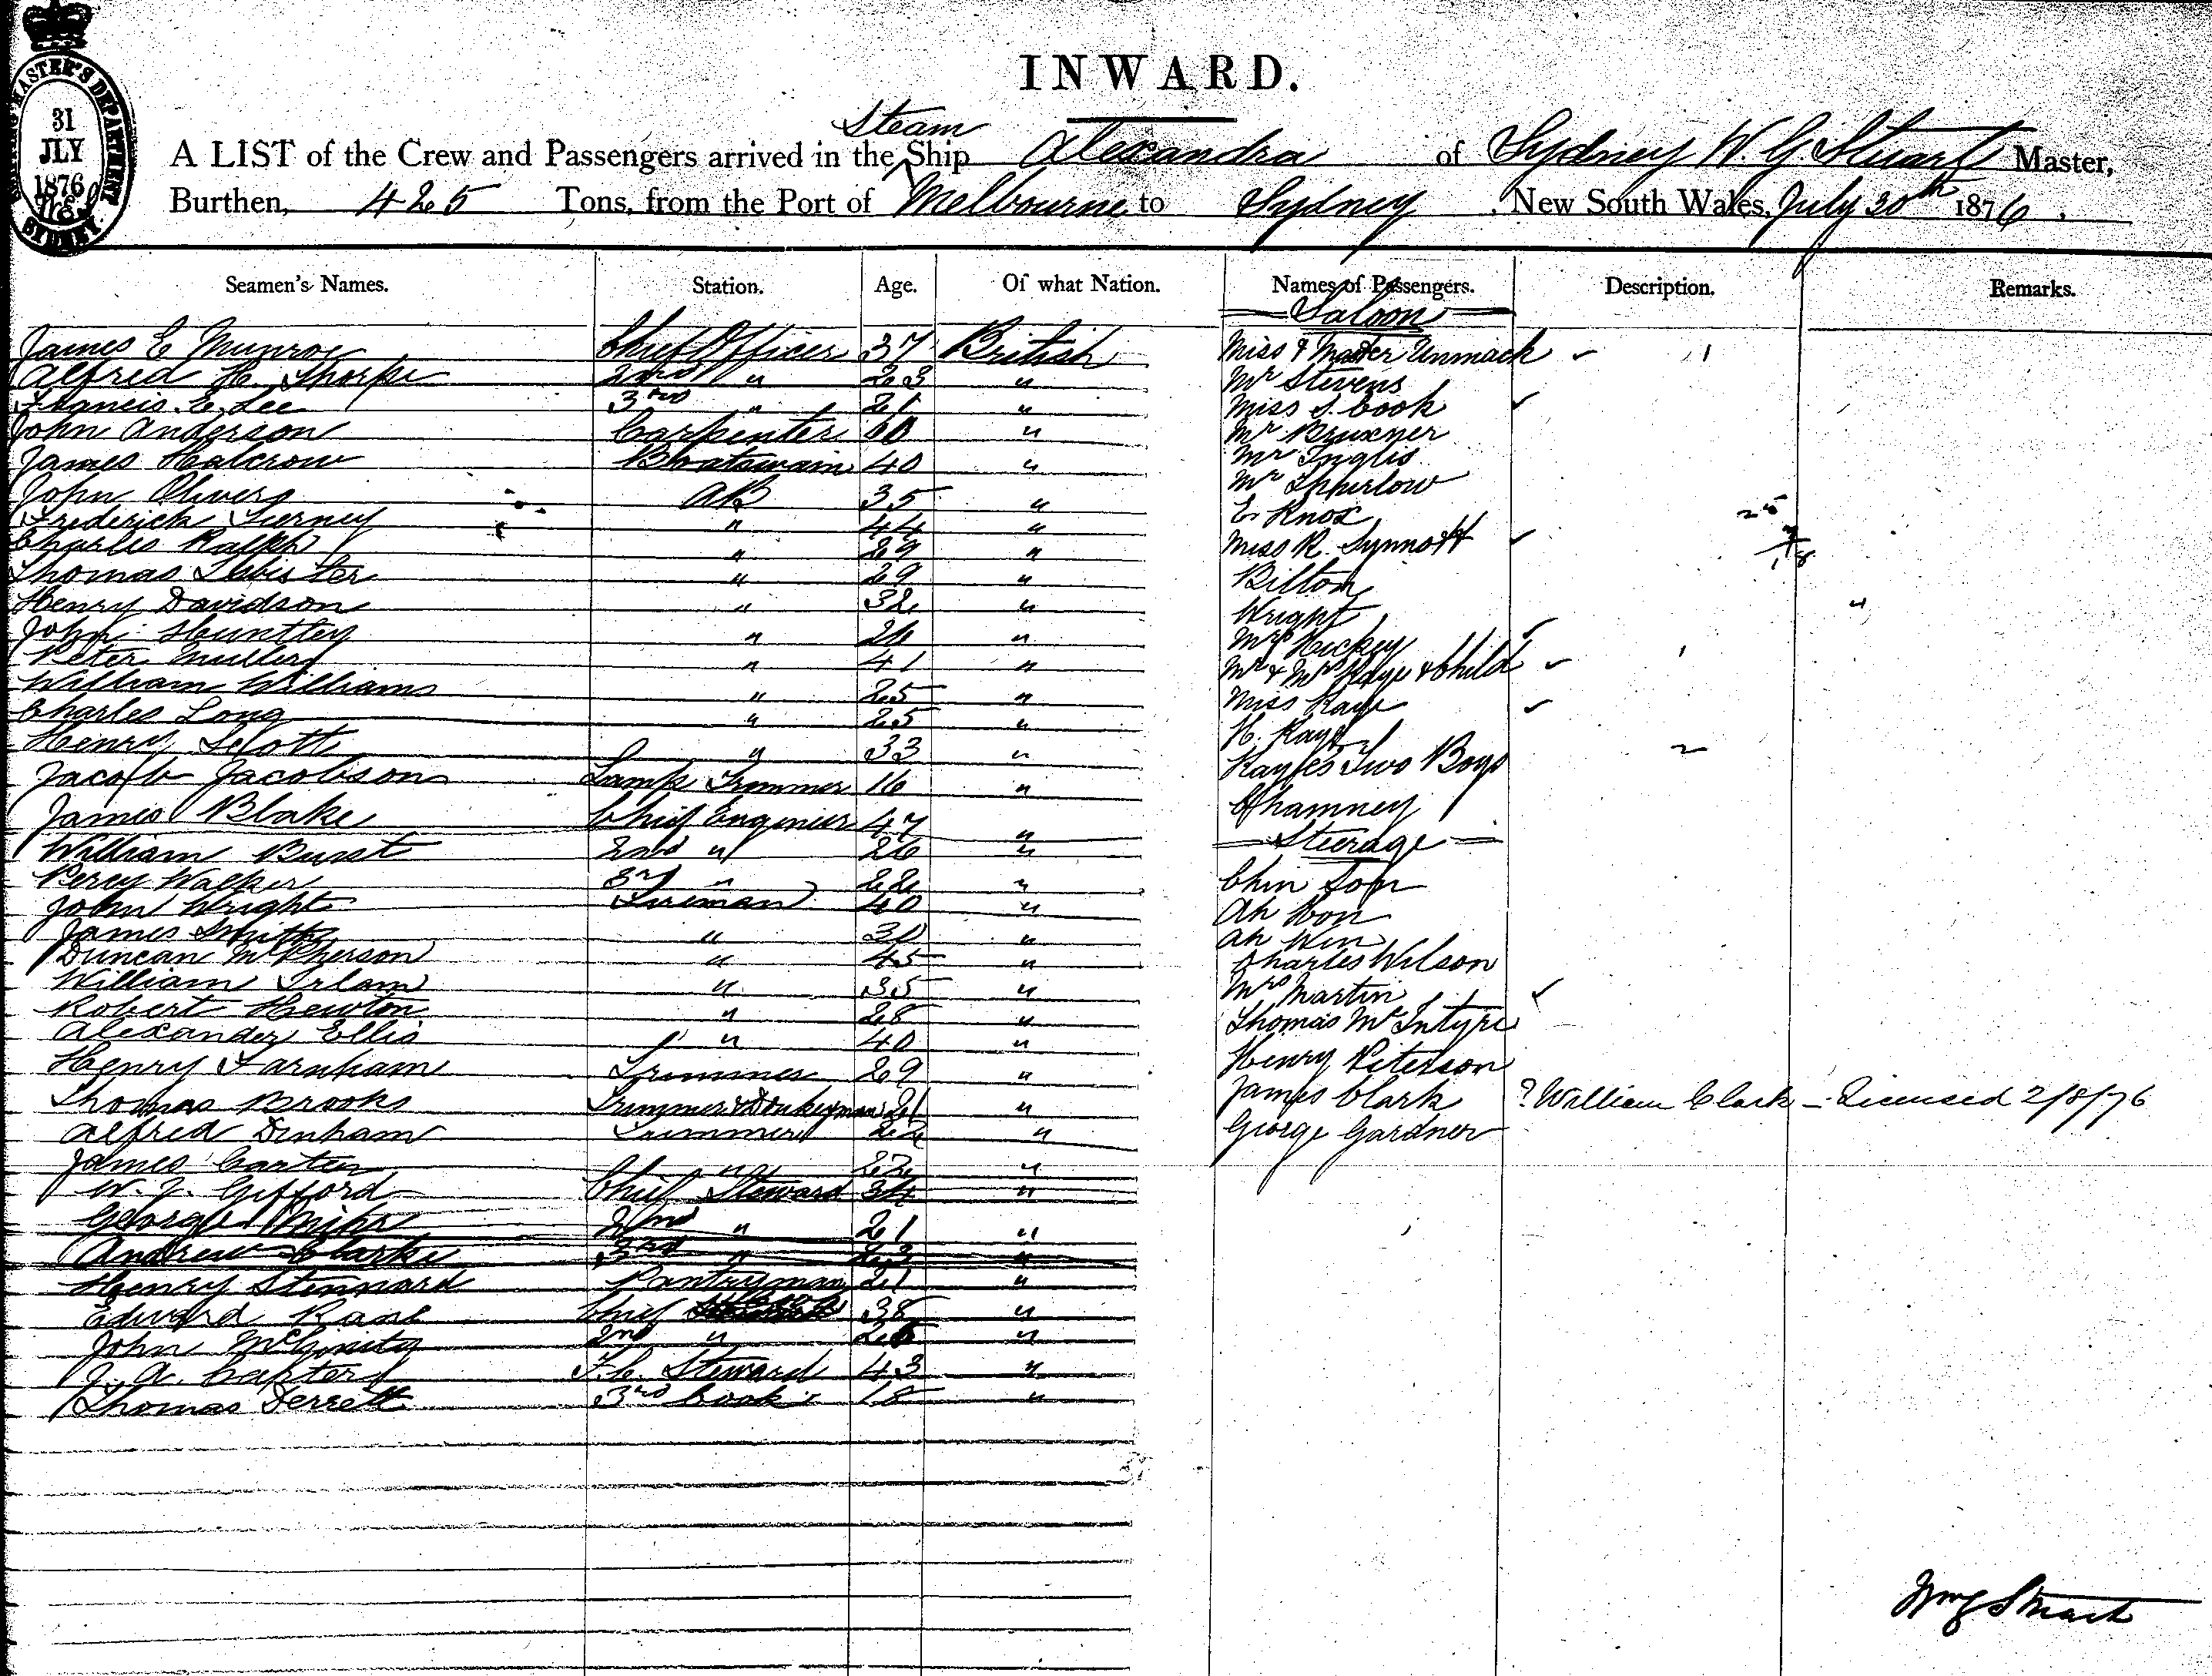 INWARD.
MASTER'S DEPARTMENT
31
JLY
1876
SYDNEY
Steam
A LIST of the Crew and Passengers arrived in the Ship Alexandra of Sydney W. G. Stuart Master,
Burthen, 425 Tons, from the Port of Melbourne to Sydney, New South Wales, July 30th 1876.
Seamen's Names. Station. Age. Of what Nation. Names of Passengers. Description. Remarks.
Saloon
James E Munroe Chief Officer 37 British Miss & Master Unmack ✓ 1
Alfred H. Thorpe 2nd " 23 " Mr Stevens
Francis E. Lee 3rd " 21 " Miss S. Cook ✓
John Anderson Carpenter 60 " Mr Bruxner
James Halcrow Boatswain 40 " Mr Inglis
John Olivers AB 35 " Mr
Frederick Turney " 44 " E. Knox 25
Charles Ralph " 29 " Miss R. Synnott ✓
Thomas Isbister " 29 " Bilton
Henry Davidson " 32 " Wright "
John Huntley " 26 " Mrs Hickey ✓
Peter Mullery " 41 " Mr & Mrs Kaye & Child ✓ 1
William Williams " 25 " Miss Kaye ✓
Charles Long " 25 " H. Kaye
Henry Scott " 33 " Kaye's Two Boys 2
Jacob Jacobson Lamp Trimmer 16 " Chamney
James Blake Chief Engineer 47 "
Steerage
William Burst 2nd " 26 "
Percy Walker 3rd " 22 " Chin
John Wright Fireman 40 " Ah Hon
James Smith " 30 " Ah Win
Duncan McPherson " 45 " Charles Wilson
William Irlam " 35 " Mrs Martin ✓
Robert Hewton " 28 " Thomas McIntyre
Alexander Ellis " 40 "
Henry Farnham Trimmer 29 " Henry Peterson
Thomas Brooks Trimmer & Donkeyman 21 " James Clark ? William Clark – Licensed 2/8/76
Alfred Dinham Trimmer 22 " George Gardner
James Carter " 22 "
W. J. Gifford Chief Steward 34 "
George 2nd " 21 "
Andrew Clarke 3rd " 23 "
Henry Stennard Pantryman 21 "
Edward Kane Chief 38 "
John McGinity 2nd " "
J. A. Carter F.C. Steward 43 "
Thomas Derrett 3rd Cook 18 "
Wm G Stuart